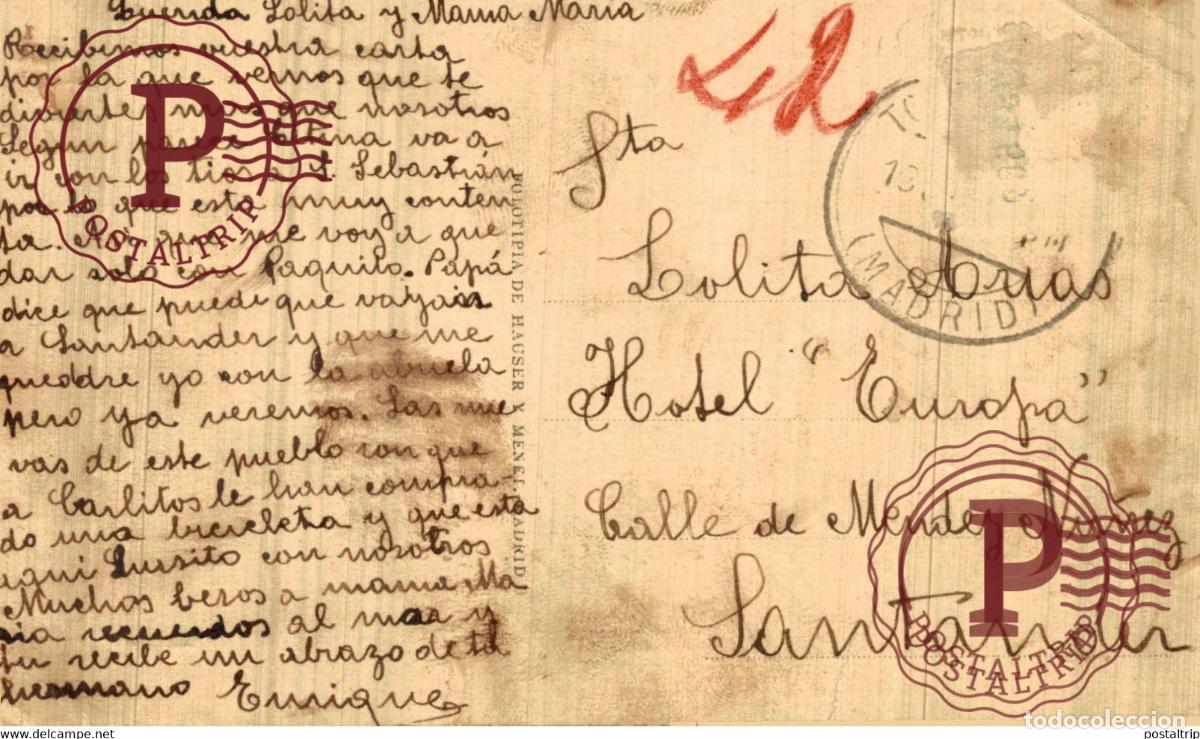 Querida Lolita y Mama Maria
Recibimos vuestra carta
por la que vemos que te
diviertes mas que nosotros
Segun parece va a
ir con los tios a S. Sebastián
por lo que esta muy conten
ta. Asi que me voy a que
dar solo con Paquito. Papá
dice que puede que vayais
a Santander y que me
queddre yo con la abuela
pero ya veremos. Las nue
vas de este pueblo son que
a Carlitos le han compra
do una bicicleta y que esta
aqui Luisito con nosotros
Muchos besos a mama Ma
ria recuerdos al mar y
tu recibe un abrazo de tu
hermano Enrique
FOTOTIPIA DE HAUSER Y MENET MADRID
Sta
Lolita Arias
Hotel "Europa"
Calle de Mendez Núñez
Santander
(MADRID)
P
POSTALTRIP
P
POSTALTRIP
POSTALTRIP
todocoleccion
www.delcampe.net
postaltrip